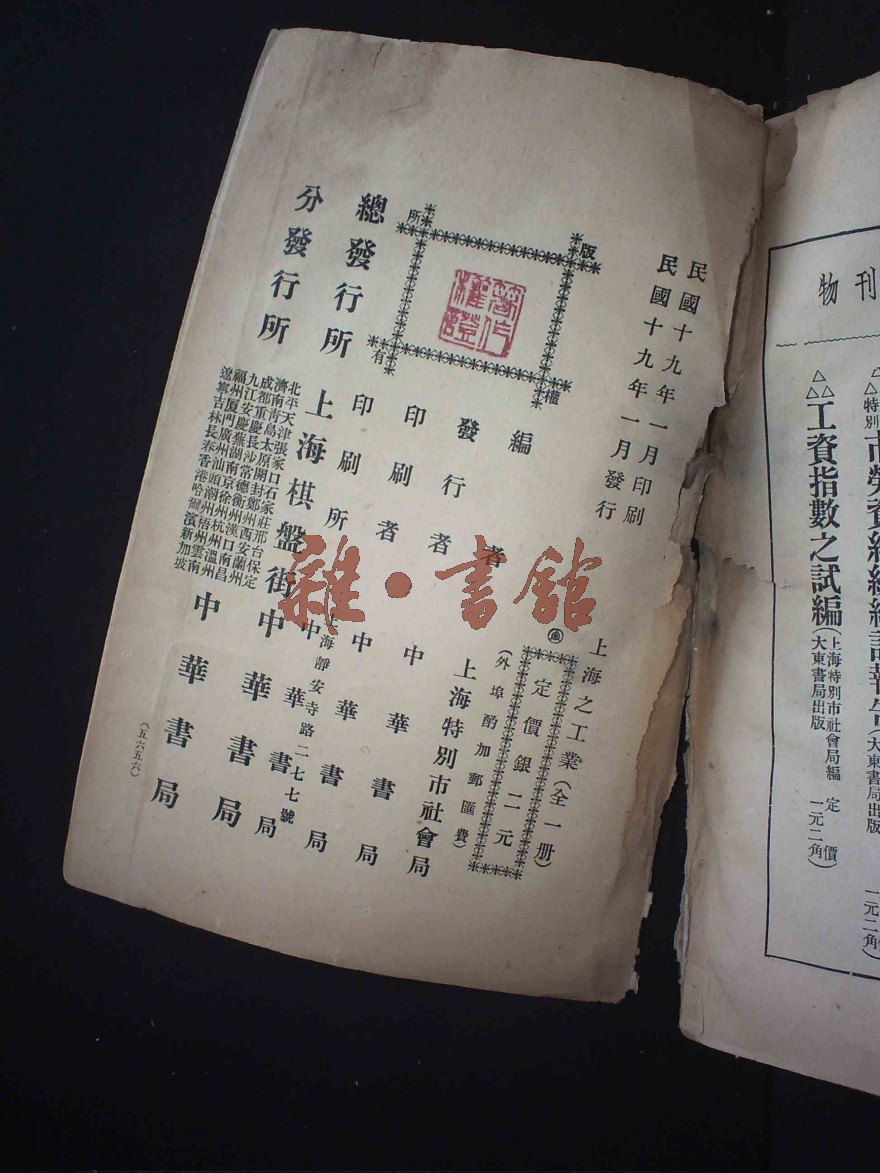 民國十九年一月印刷
民國十九年一月發行
上海之工業(全一册)
定價銀二元
(外埠酌加郵匯費)
版權所有
著作權證
編者 上海特別市社會局
發行者 中華書局
印刷者 中華書局
印刷所 上海靜安寺路二七七號 中華書局
總發行所 上海棋盤街 中華書局
分發行所 中華書局
北平天津張家口石家莊邢台保定
濟南青島太原開封鄭州西安蘭州
成都重慶長沙常德衡州漢口南昌
九江安慶蕪湖南京徐州杭州溫州
福州厦門廣州汕頭潮州梧州雲南
遼寧吉林長春香港哈爾濱新加坡
(五六五六)
雜·書館
刊物
特別市勞資糾紛統計報告(大東書局出版 一元二角)
△△△工資指數之試編(上海特別市社會局編 定價
大東書局出版 一元二角)